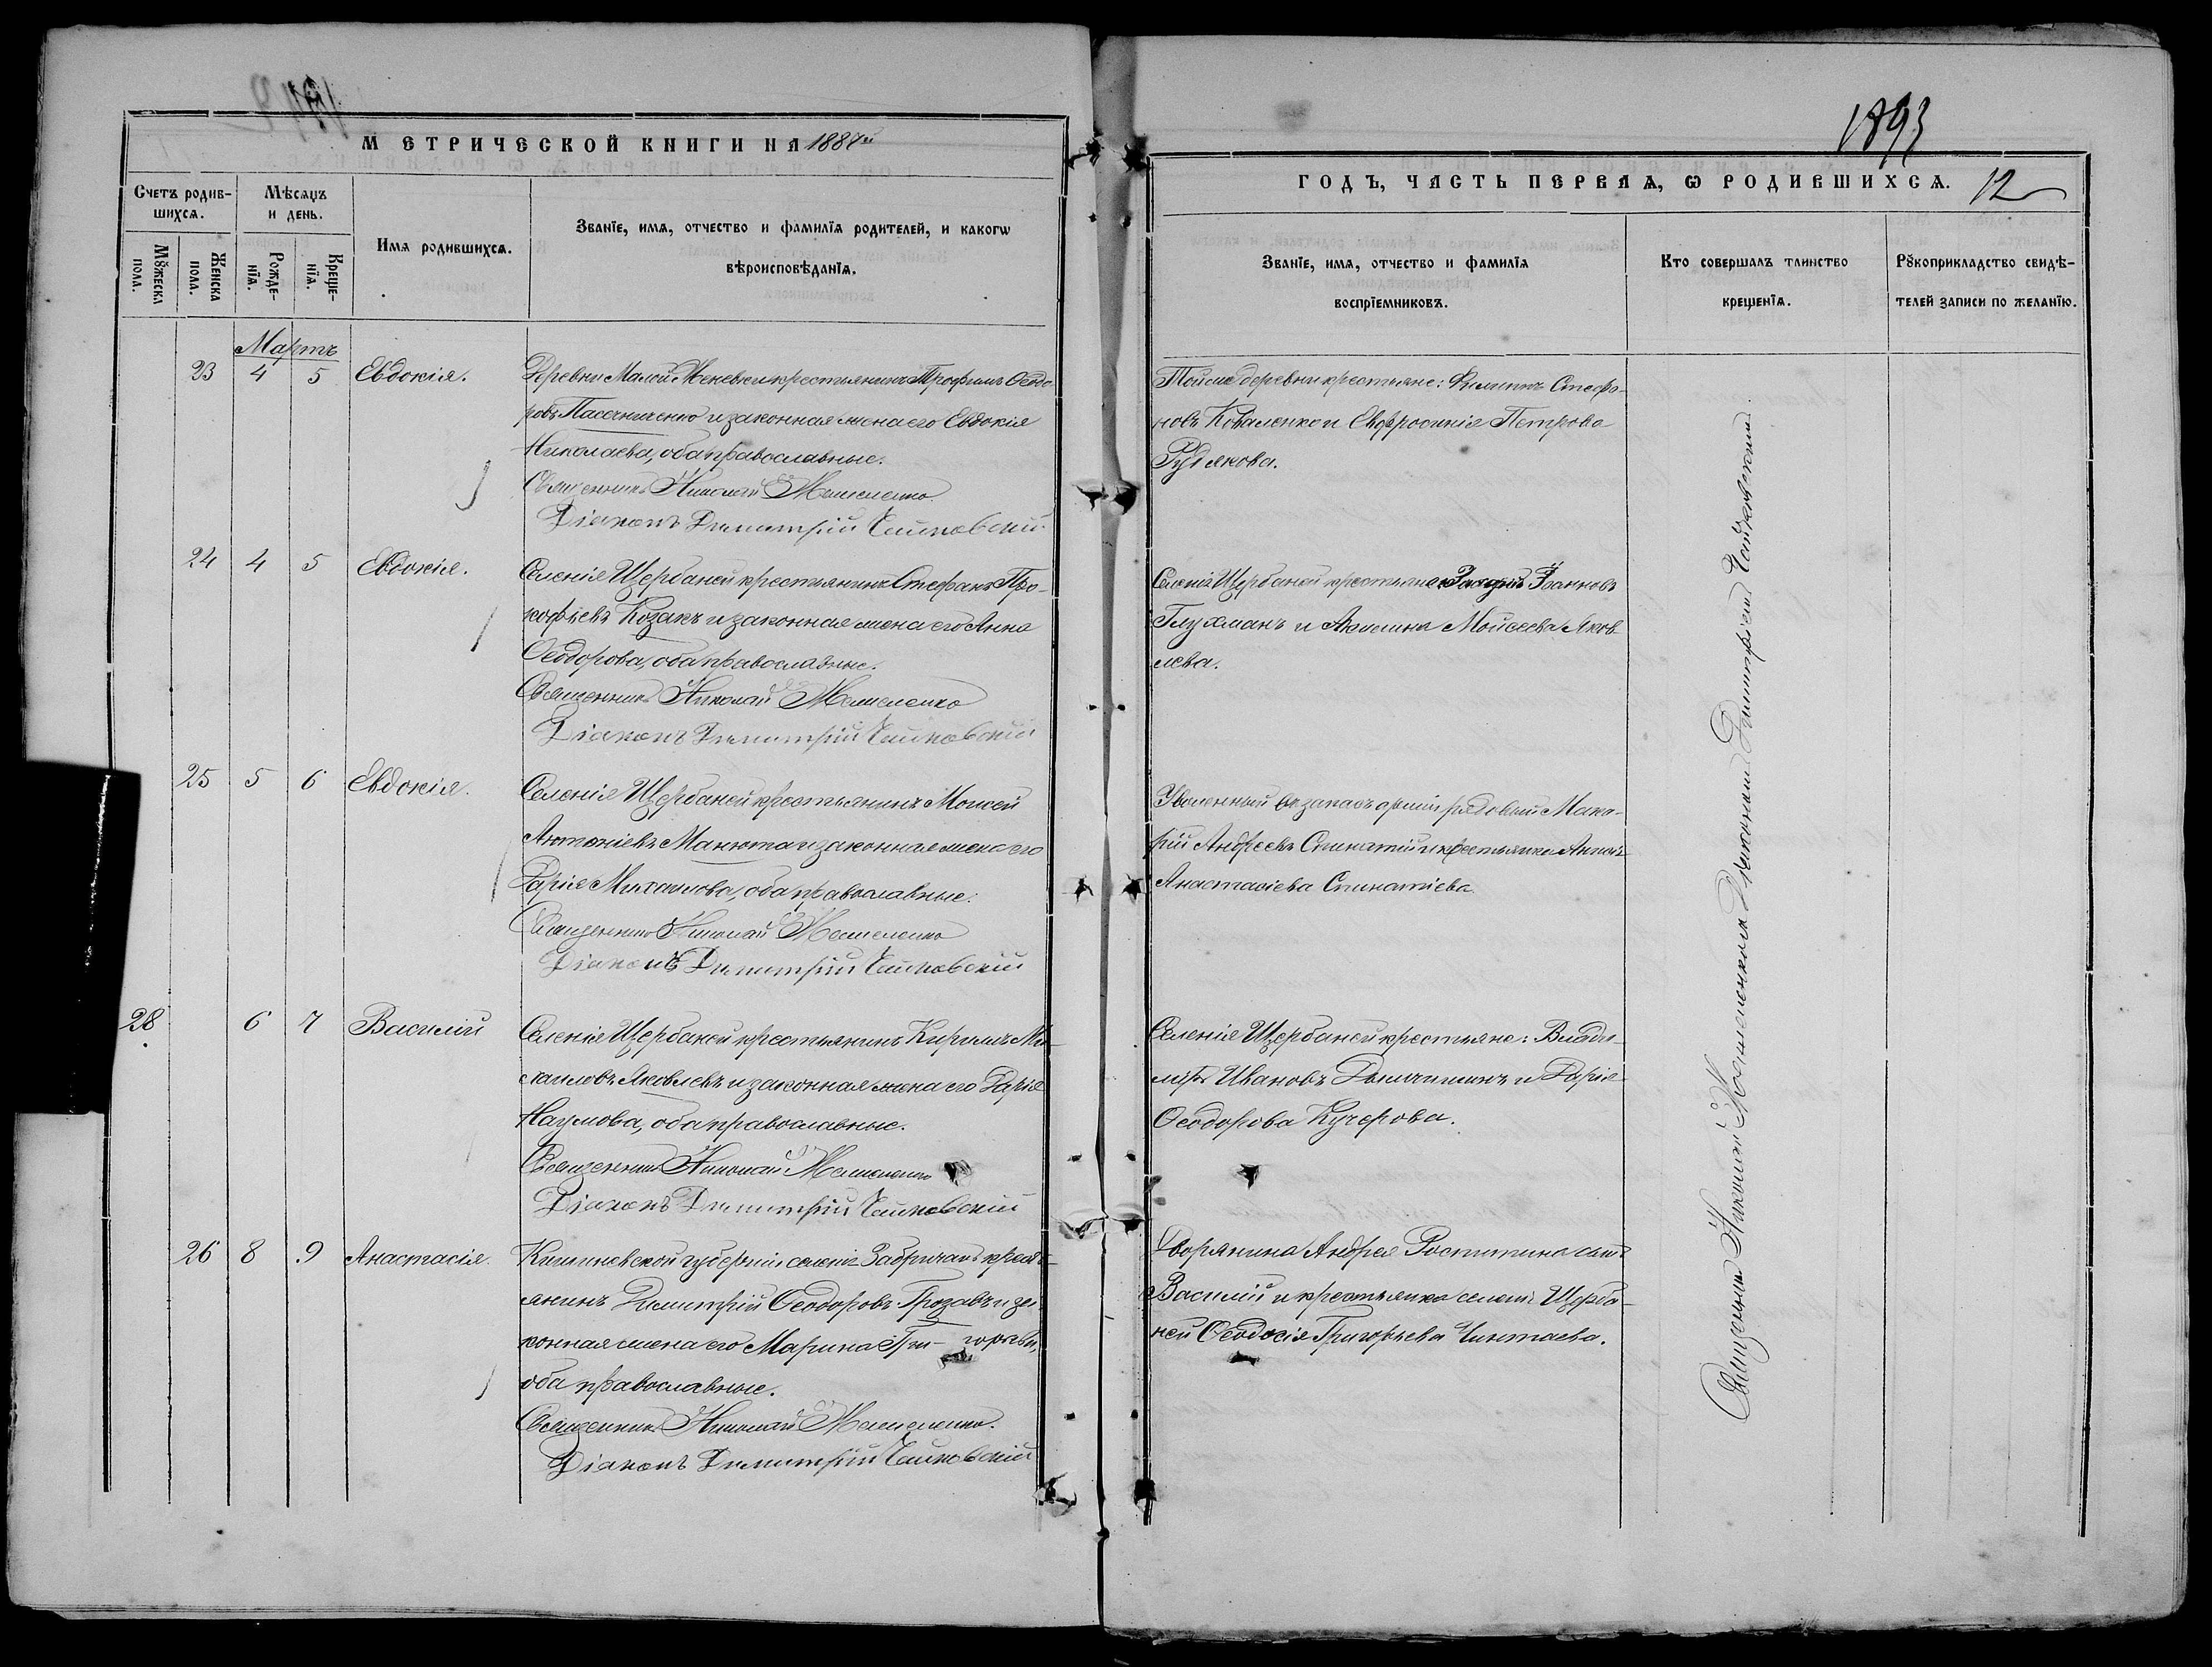 1893
МЕТРИЧЕСКОЙ КНИГИ НА 1887й
ГОДЪ, ЧАСТЬ ПЕРВАѦ, Ѡ РОДИВШИХСѦ. 12
Счетъ родив-
шихсѧ.
Мѣсѧцъ
и день.
Имѧ родившихсѧ.
Званїе, имѧ, отчество и фамилїѧ родителей, и какогѡ
вѣроисповѣданїѧ.
Мꙋжеска
пола.
Женска
пола.
Рожде-
нїѧ.
Креще-
нїѧ.
Званїе, имѧ, отчество и фамилїѧ
воспрїемниковъ.
Кто совершалъ таинство
крещенїѧ.
Рꙋкоприкладство свидѣ-
телей записи по желанїю.
Мартъ
23 4 5 Евдокія.
Деревни Малой крестьянинъ Трофимъ Ѳеодо-
ровъ Пасечниченко и законная жена его Евдокія
Николаева, оба православные.
Священникъ Николай
Діаконъ Димитрій Чайковскій
Тойже деревни крестьяне: Филиппъ Стефа-
новъ Коваленко и Евфросинія Петрова
Рудякова.
24 4 5 Евдокія.
Селенія Щербаней крестьянинъ Стефанъ Про-
кофьевъ Козакъ и законная жена его Анна
Ѳеодорова, оба православные.
Священникъ Николай
Діаконъ Димитрій Чайковскій
Селенія Щербаней крестьяне Іоанновъ
Глухманъ и Акилина Мойсеева Яков
лева.
25 5 6 Евдокія.
Селенія Щербаней крестьянинъ Моисей
Антоніевъ Манюта и законная жена его
Дарія Михаилова, оба православные.
Священникъ Николай
Діаконъ Димитрій Чайковскій
Уволенный въ запасъ арміи рядовый Мака-
рій Андреевъ Спинатій и крестьянка Анна
Анастасіева Спинатіева.
28 6 7 Василій
Селенія Щербаней крестьянинъ Кирилъ Ми-
хаиловъ Яковлевъ и законная жена его Дарія
Наумова, оба православные.
Священникъ Николай
Діаконъ Димитрій Чайковскій
Селенія Щербаней крестьяне: Влади-
міръ Ивановъ и Дарія
Ѳеодорова Кучерова.
26 8 9 Анастасія.
Кишиневской губерніи селенія Забричанъ кресть-
янинъ Димитрій Ѳеодоровъ Грозавъ и за-
конная жена его Марина Гри- горьева,
оба православные.
Священникъ Николай
Діаконъ Димитрій Чайковскій
Дворянина Андрея сынъ
Василій и крестьянка селенія Щерба-
ней Ѳеодосія Григорьева Чинтаева.
Священникъ Николай съ Діакономъ Димитріемъ Чайковскимъ